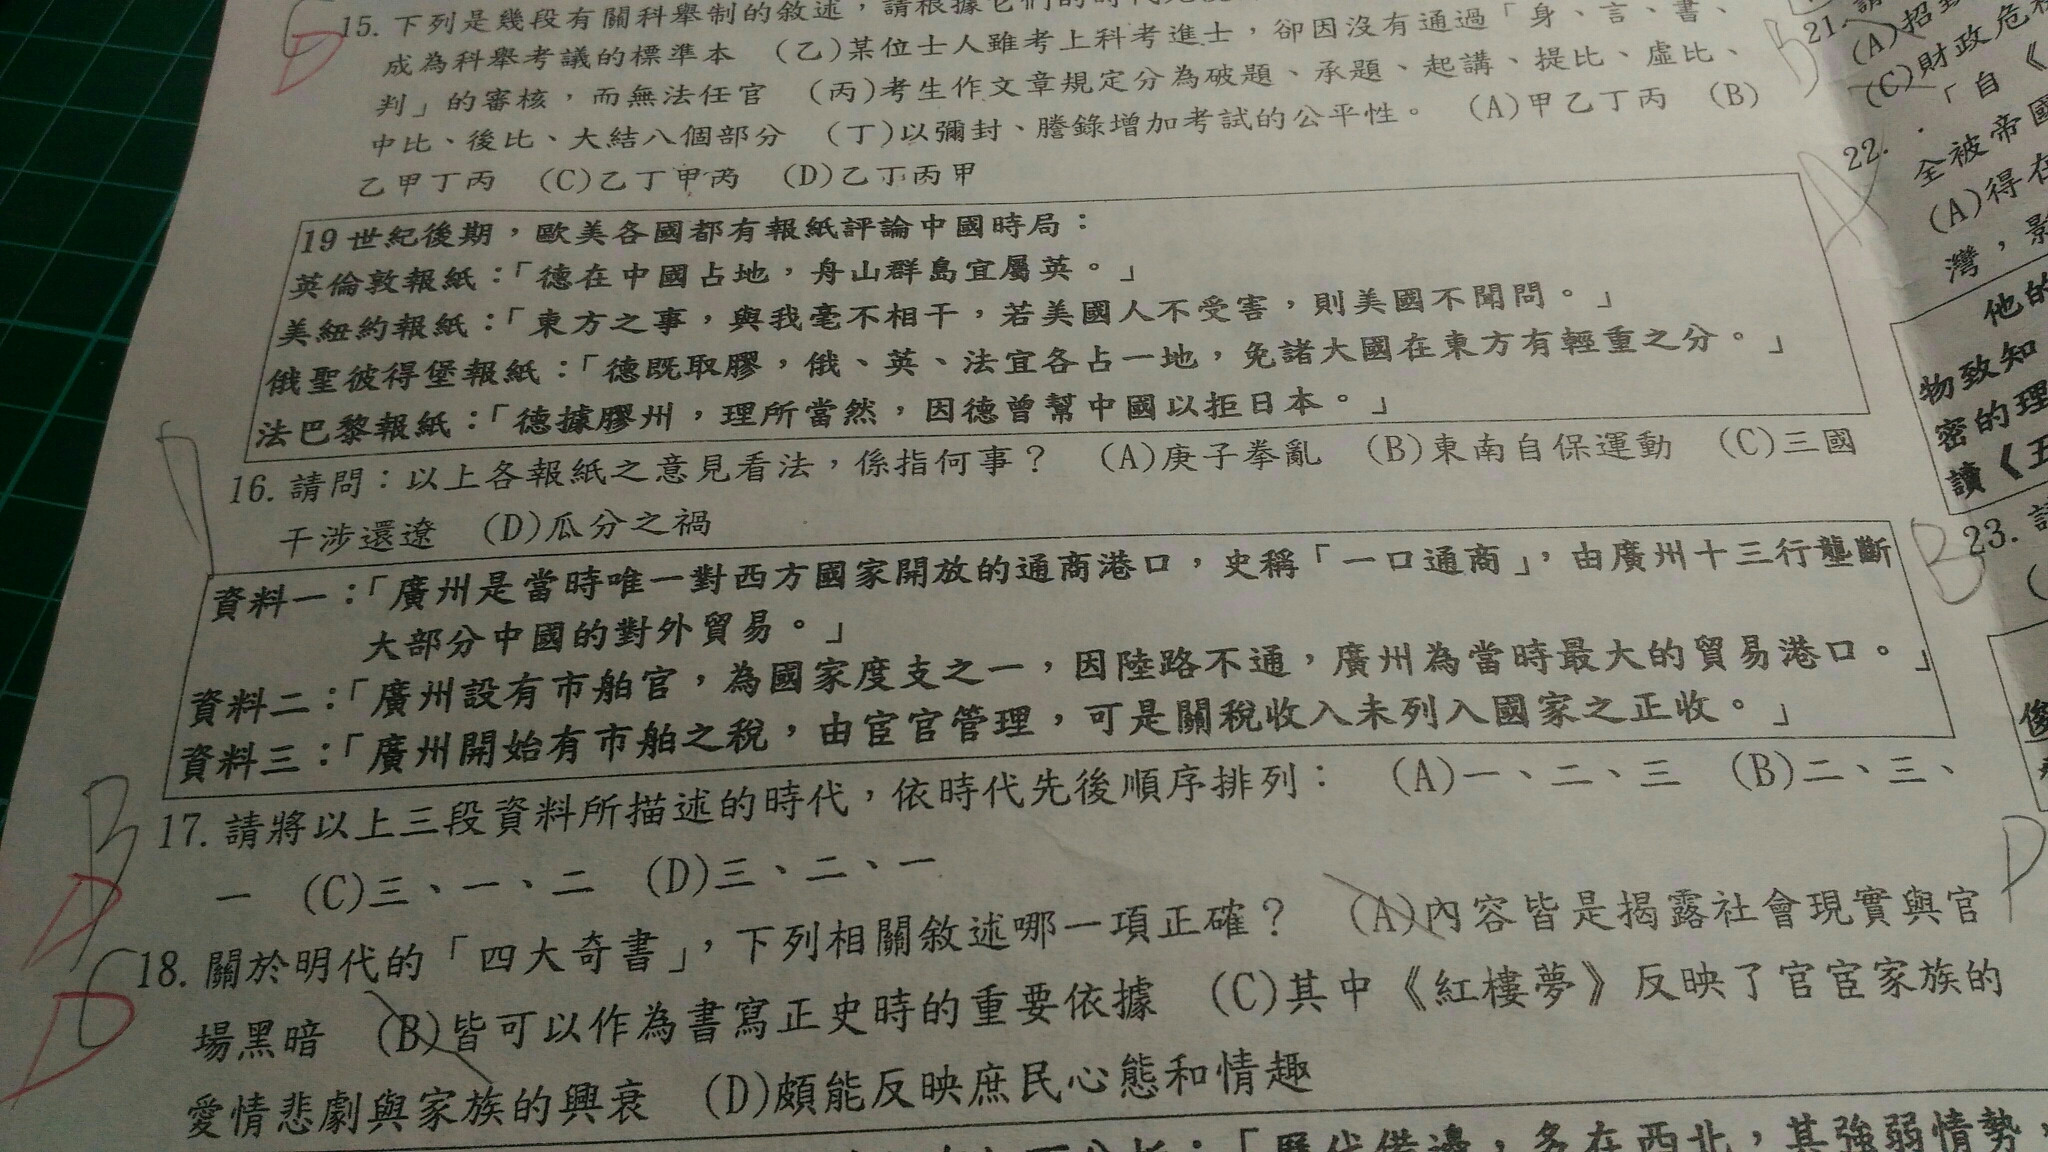 15. 下列是幾段有關科舉制的敘述，請根據它們的時代先後
成為科舉考議的標準本 (乙)某位士人雖考上科考進士，卻因沒有通過「身、言、書、
判」的審核，而無法任官 (丙)考生作文章規定分為破題、承題、起講、提比、虛比、
中比、後比、大結八個部分 (丁)以彌封、謄錄增加考試的公平性。 (A)甲乙丁丙 (B)
乙甲丁丙 (C)乙丁甲丙 (D)乙丁丙甲
19世紀後期，歐美各國都有報紙評論中國時局：
英倫敦報紙：「德在中國占地，舟山群島宜屬英。」
美紐約報紙：「東方之事，與我毫不相干，若美國人不受害，則美國不聞問。」
俄聖彼得堡報紙：「德既取膠，俄、英、法宜各占一地，免諸大國在東方有輕重之分。」
法巴黎報紙：「德據膠州，理所當然，因德曾幫中國以拒日本。」
D
16. 請問：以上各報紙之意見看法，係指何事？ (A)庚子拳亂 (B)東南自保運動 (C)三國
干涉還遼 (D)瓜分之禍
資料一：「廣州是當時唯一對西方國家開放的通商港口，史稱「一口通商」，由廣州十三行壟斷
大部分中國的對外貿易。」
資料二：「廣州設有市舶官，為國家度支之一，因陸路不通，廣州為當時最大的貿易港口。」
資料三：「廣州開始有市舶之稅，由宦官管理，可是關稅收入未列入國家之正收。」
B
D
17. 請將以上三段資料所描述的時代，依時代先後順序排列： (A)一、二、三 (B)二、三、
一 (C)三、一、二 (D)三、二、一
C
D
18. 關於明代的「四大奇書」，下列相關敘述哪一項正確？ (A)內容皆是揭露社會現實與官
場黑暗 (B)皆可以作為書寫正史時的重要依據 (C)其中《紅樓夢》反映了官宦家族的
愛情悲劇與家族的興衰 (D)頗能反映庶民心態和情趣
「歷代備邊，多在西北，其強弱情勢，
B
21.
(A)招
(C)財政危
「自《
A
22.
全被帝國
(A)得在
灣，影
他的
物致知
密的理
讀《五
B
23.